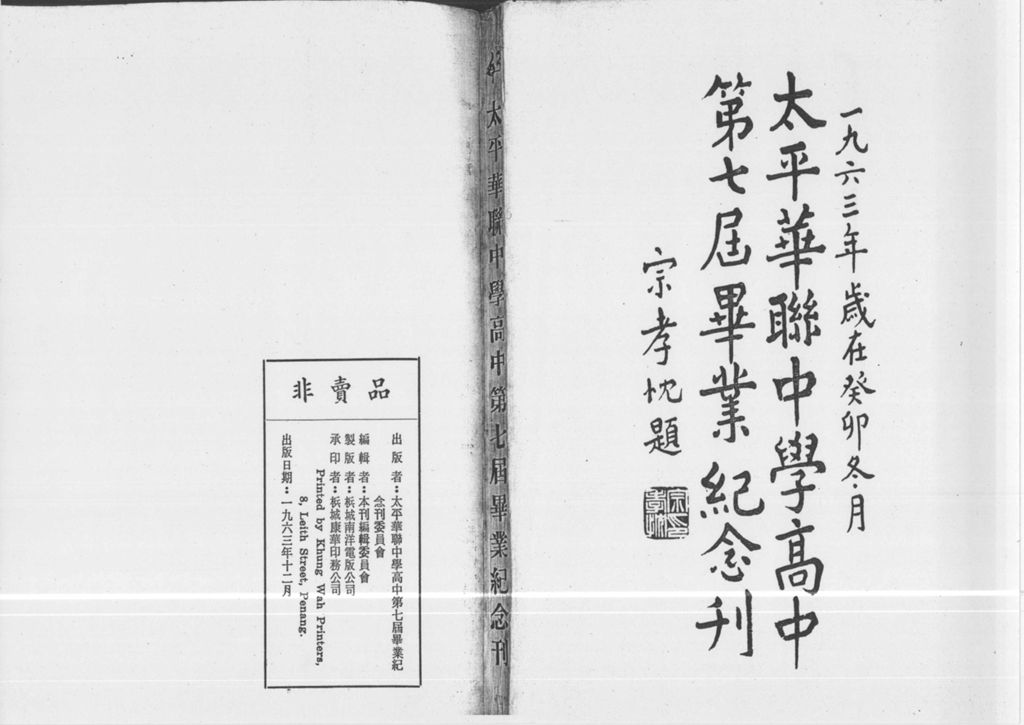 一九六三年歲在癸卯冬月
太平華聯中學高中
第七屆畢業紀念刊
宗孝忱題
太平華聯中學高中第七屆畢業紀念刊
非賣品
出版者：太平華聯中學高中第七屆畢業紀
念刊委員會
編輯者：本刊編輯委員會
製版者：檳城南洋電版公司
承印者：檳城康華印務公司
Printed by Khung Wah Printers,
8, Leith Street, Penang.
出版日期：一九六三年十二月